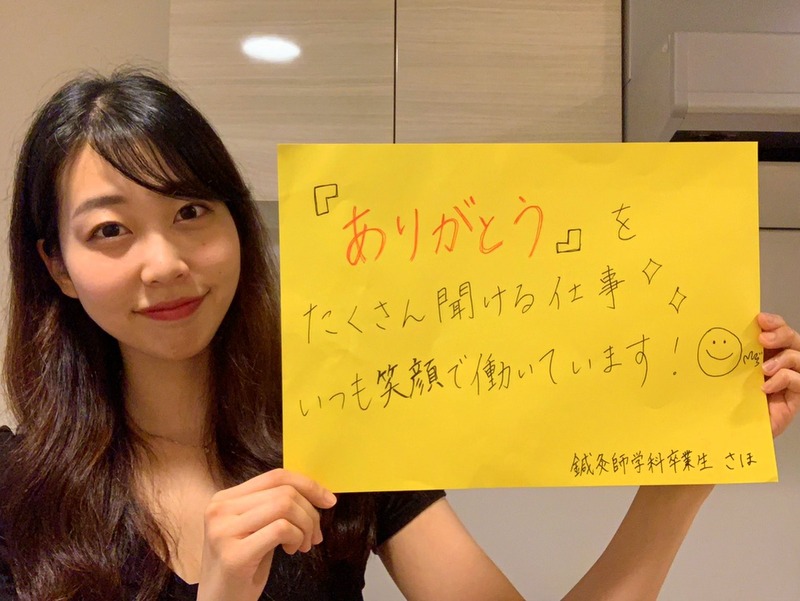 『ありがとう』を
たくさん聞ける仕事
いつも笑顔で働いています！
鍼灸師学科卒業生 さほ